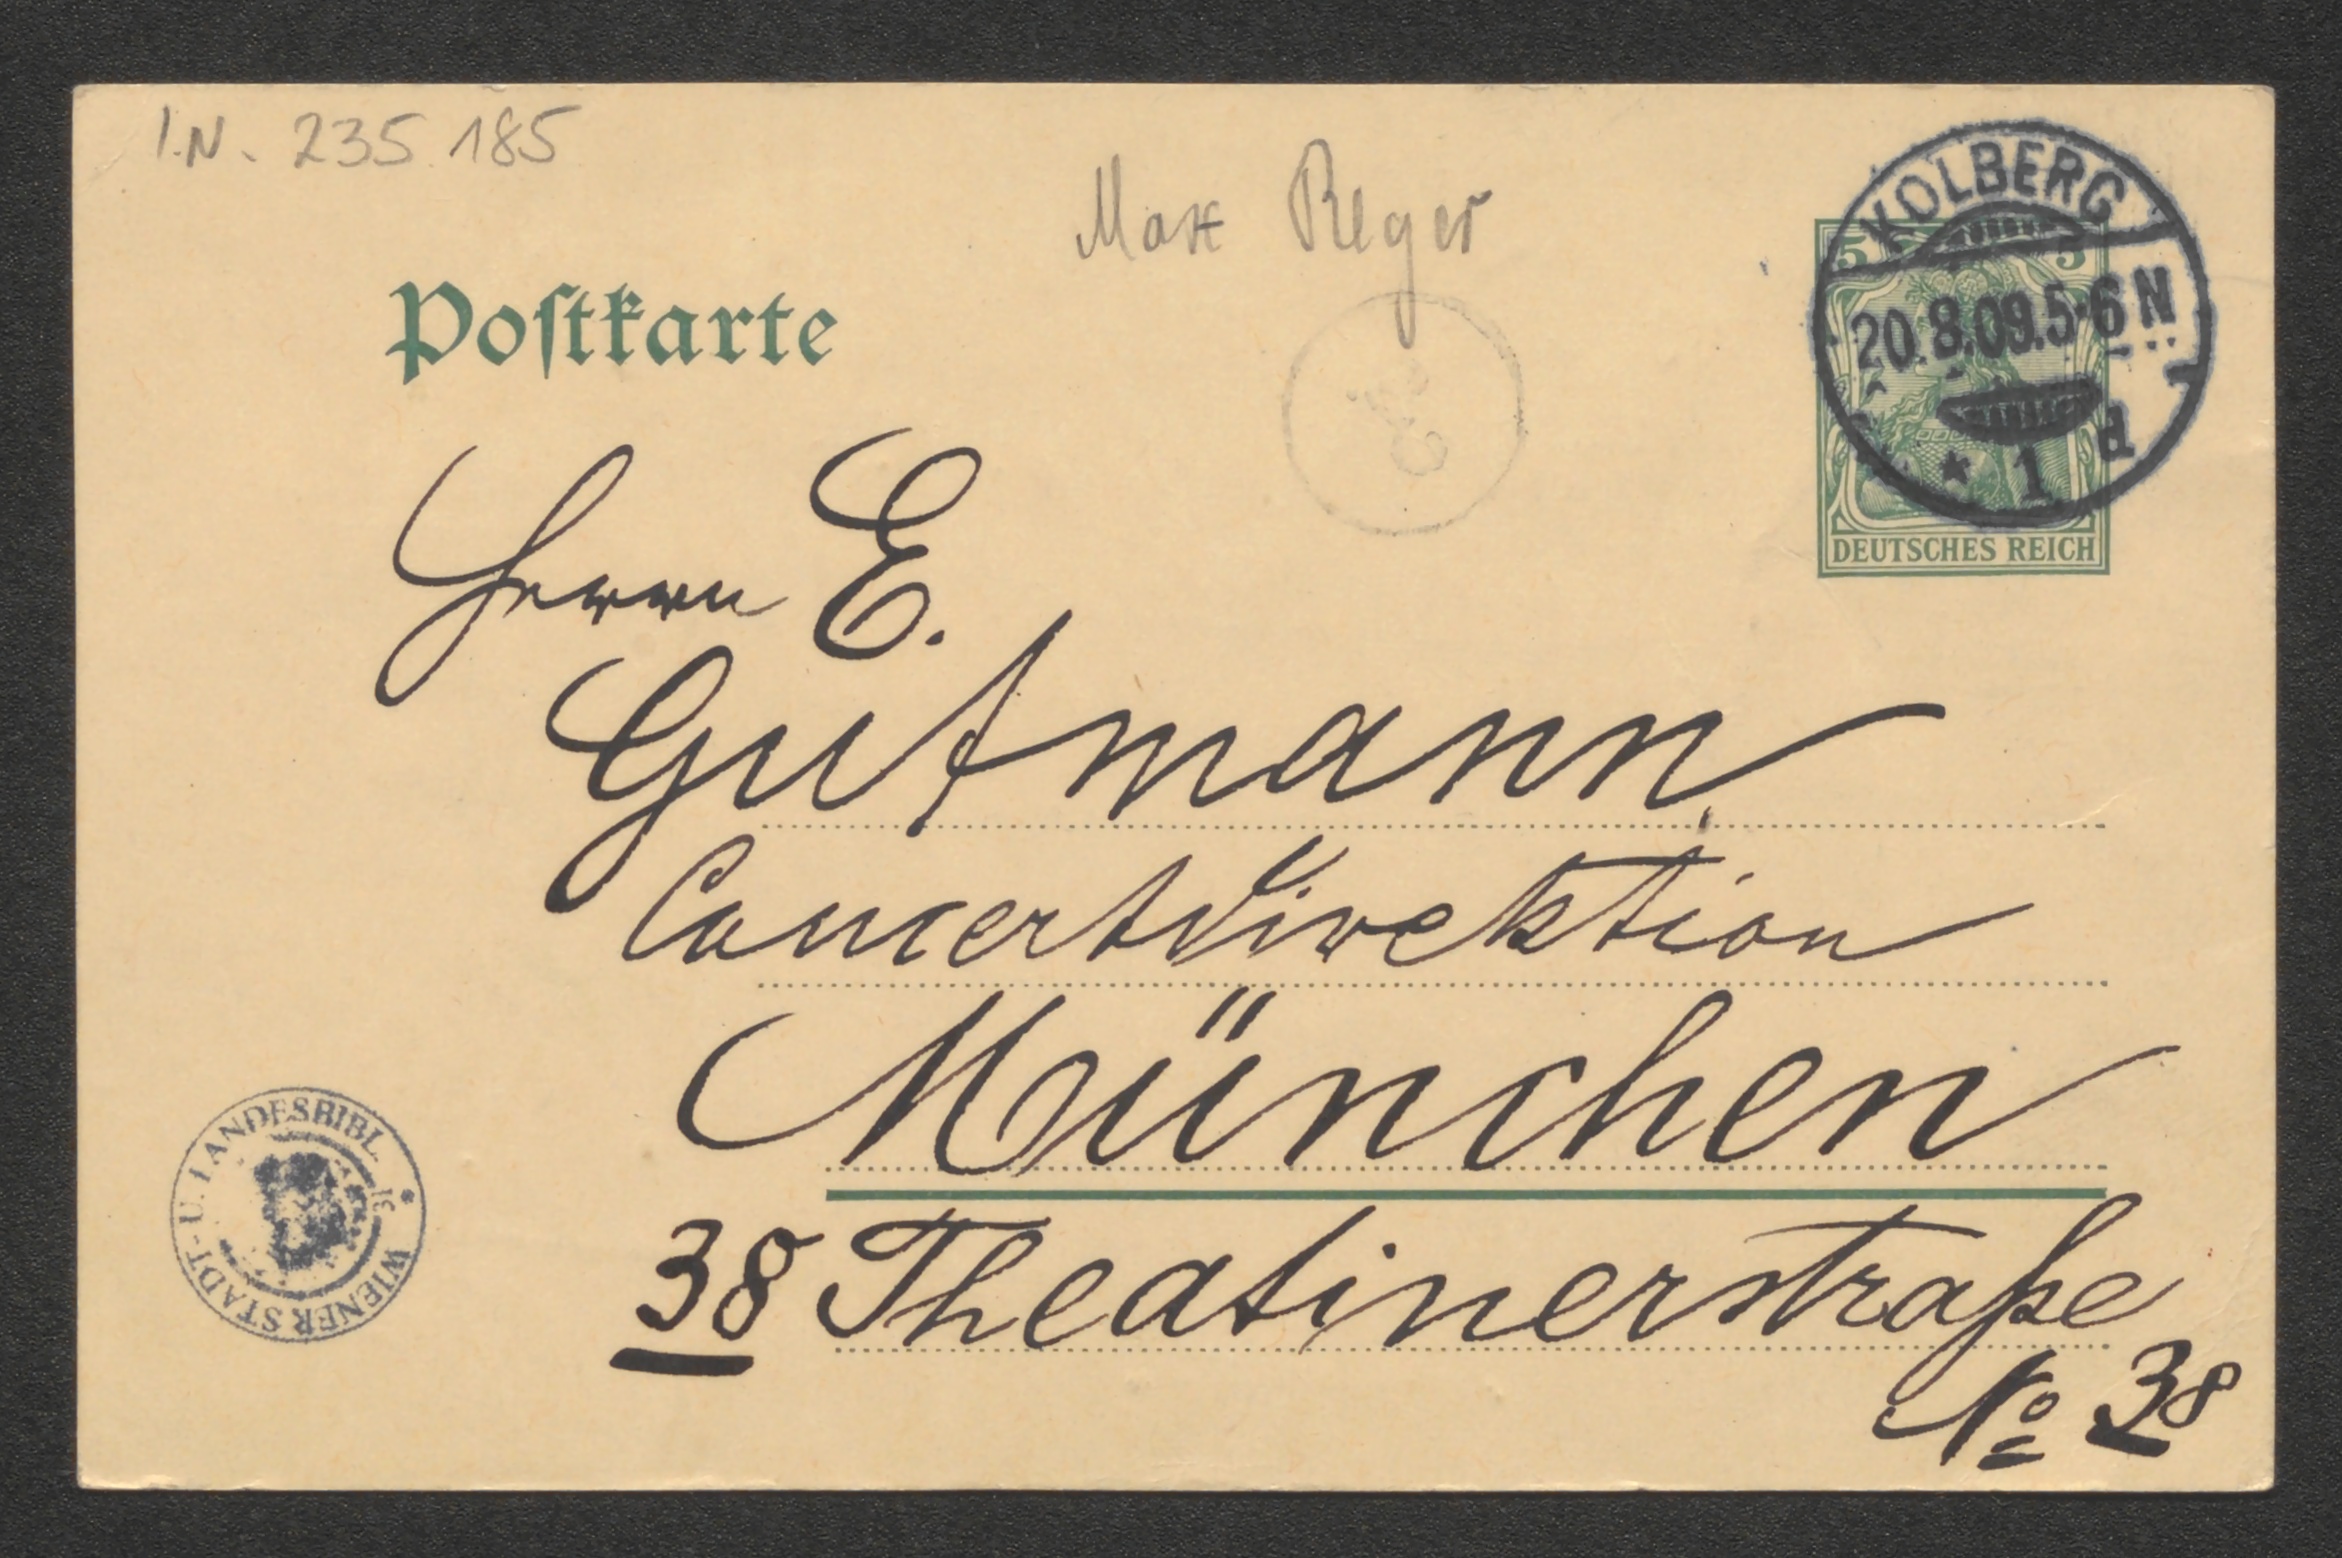 I.N. 235.185
Max Reger
Postkarte
KOLBERG
20.8.09.5-6N
* 1 d
5 5
DEUTSCHES REICH
Herrn E.
Gutmann
Concertdirektion
München
38 Theatinerstraße
No 38
WIENER STADT- U. LANDESBIBL.